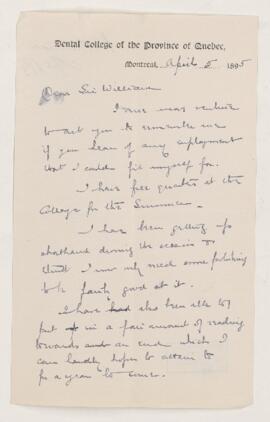 Dental College of the Province of Quebec,
Montreal, April 5 1895
Dear Sir William
I once more venture
to ask you to remember me
if you hear of any employment
that I could fit myself for.
I have free quarters at the
College for the Summer.
I have been getting up
shorthand during the session &
think I now only need some polishing
to be fairly good at it.
I have had also been able to
put in a fair amount of reading
towards an end which I
can hardly hope to attain to
for a year to come.